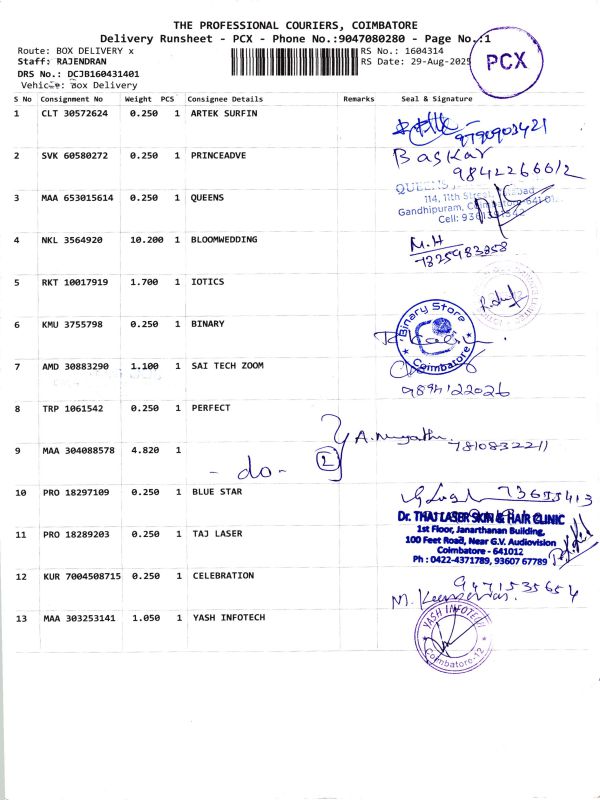 THE PROFESSIONAL COURIERS, COIMBATORE
Delivery Runsheet - PCX - Phone No.:9047080280 - Page No.:1
Route: BOX DELIVERY x RS No.: 1604314
Staff: RAJENDRAN RS Date: 29-Aug-2025
PCX
DRS No.: DCJB160431401
Vehicle: Box Delivery
S No Consignment No Weight PCS Consignee Details Remarks Seal & Signature
1 CLT 30572624 0.250 1 ARTEK SURFIN
9790903421
2 SVK 60580272 0.250 1 PRINCEADVE Baskar
9842266612
3 MAA 653015614 0.250 1 QUEENS
QUEENS
114, 11th Street,
Gandhipuram, Coimbatore
Cell:
4 NKL 3564920 10.200 1 BLOOMWEDDING M.H
7325983358
5 RKT 10017919 1.700 1 IOTICS
6 KMU 3755798 0.250 1 BINARY
Binary Store
Coimbatore
7 AMD 30883290 1.100 1 SAI TECH ZOOM
9894122026
8 TRP 1061542 0.250 1 PERFECT
7810832211
9 MAA 304088578 4.820 1
- do - 2
10 PRO 18297109 0.250 1 BLUE STAR
Dr. THAJ LASER SKIN & HAIR CLINIC
11 PRO 18289203 0.250 1 TAJ LASER
1st Floor, Janarthanan Building,
100 Feet Road, Near G.V. Audiovision
Coimbatore - 641012
Ph : 0422-4371789, 93607 67789
12 KUR 7004508715 0.250 1 CELEBRATION
9471535654
13 MAA 303253141 1.050 1 YASH INFOTECH
YASH INFOTECH
Coimbatore-12